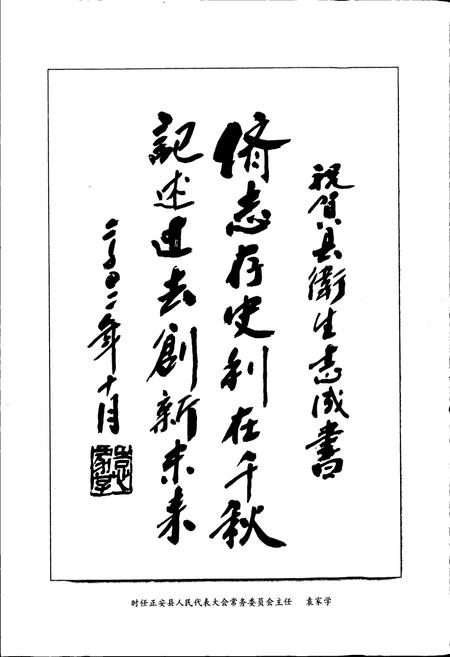 祝贺县衛生志成書
脩志存史利在千秋
記述过去創新未来
二〇〇二年十月
时任正安县人民代表大会常务委员会主任　袁家学